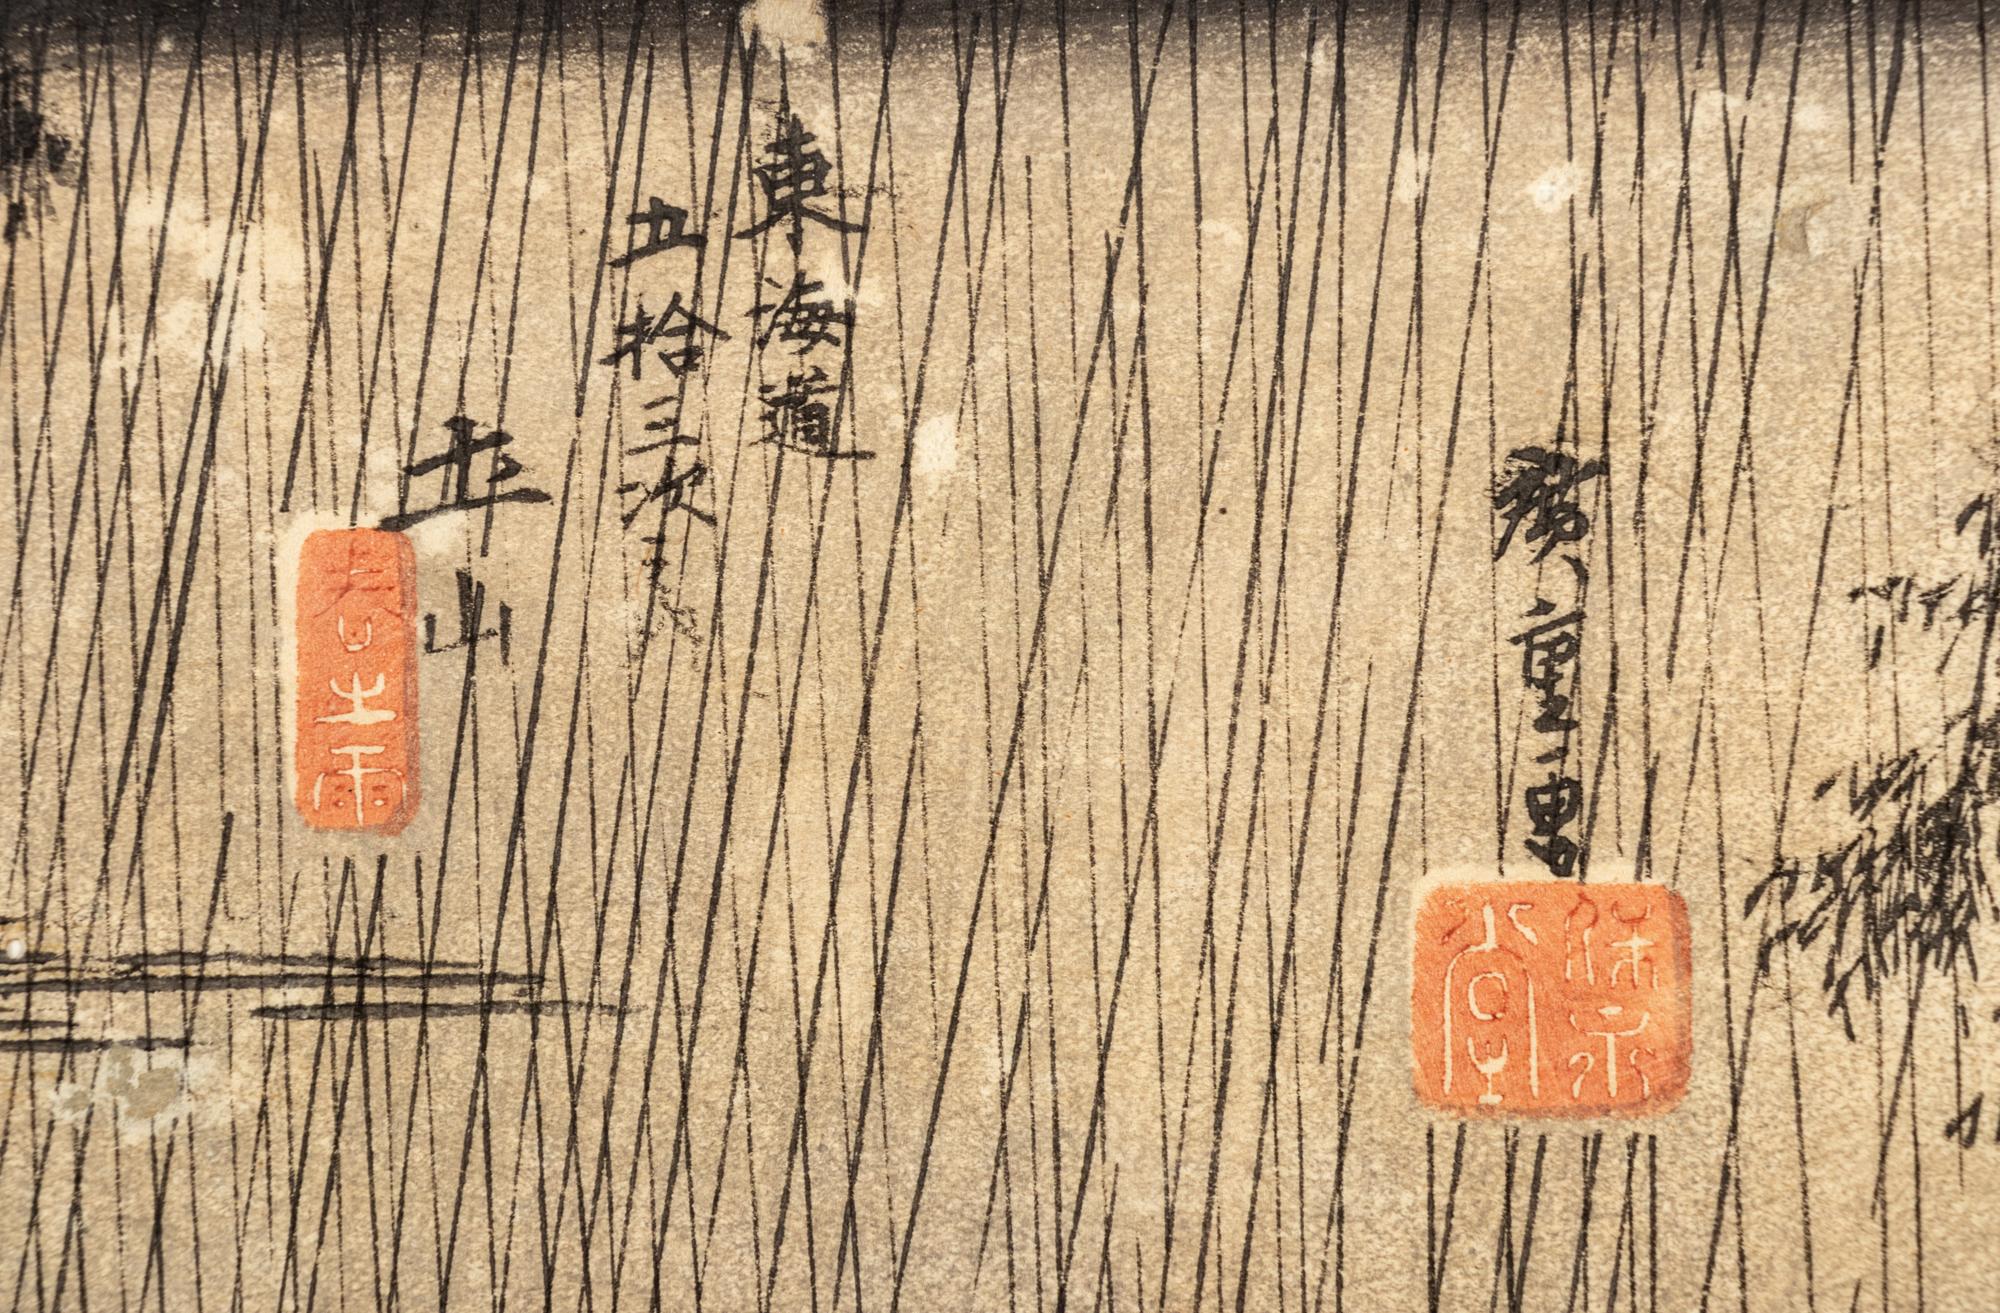 廣重画
保永堂
東海道
五拾三次
土山
春之雨